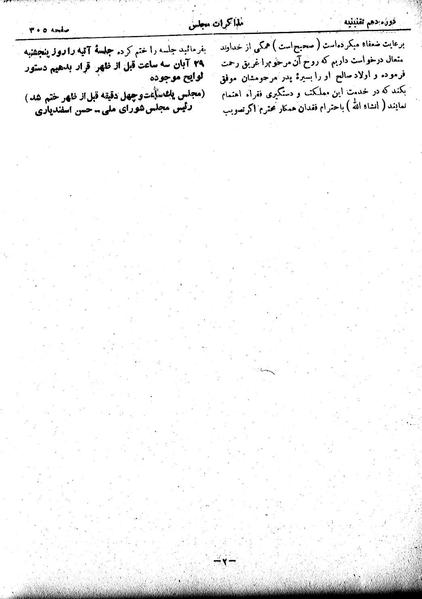 دوره دهم تقنینیه
مذاکرات مجلس
صفحه ۳۰۵
برعایت ضعفاء میکرده‌است (صحیح است) همگی از خداوند
متعال درخواست داریم که روح آن مرحوم را غریق رحمت
فرموده و اولاد صالح او را بسیرهٔ پدر مرحومشان موفق
بکند که در خدمت این مملکت و دستگیری فقراء اهتمام
نمایند (انشاء الله) باحترام فقدان همکار محترم اگر تصویب
بفرمائید جلسه را ختم کرده جلسهٔ آتیه را روز پنجشنبه
۲۹ آبان سه ساعت قبل از ظهر قرار بدهیم دستور
لوایح موجوده
(مجلس یك ساعت و چهل دقیقه قبل از ظهر ختم شد)
رئیس مجلس شورای ملی - حسن اسفندیاری
-۲-